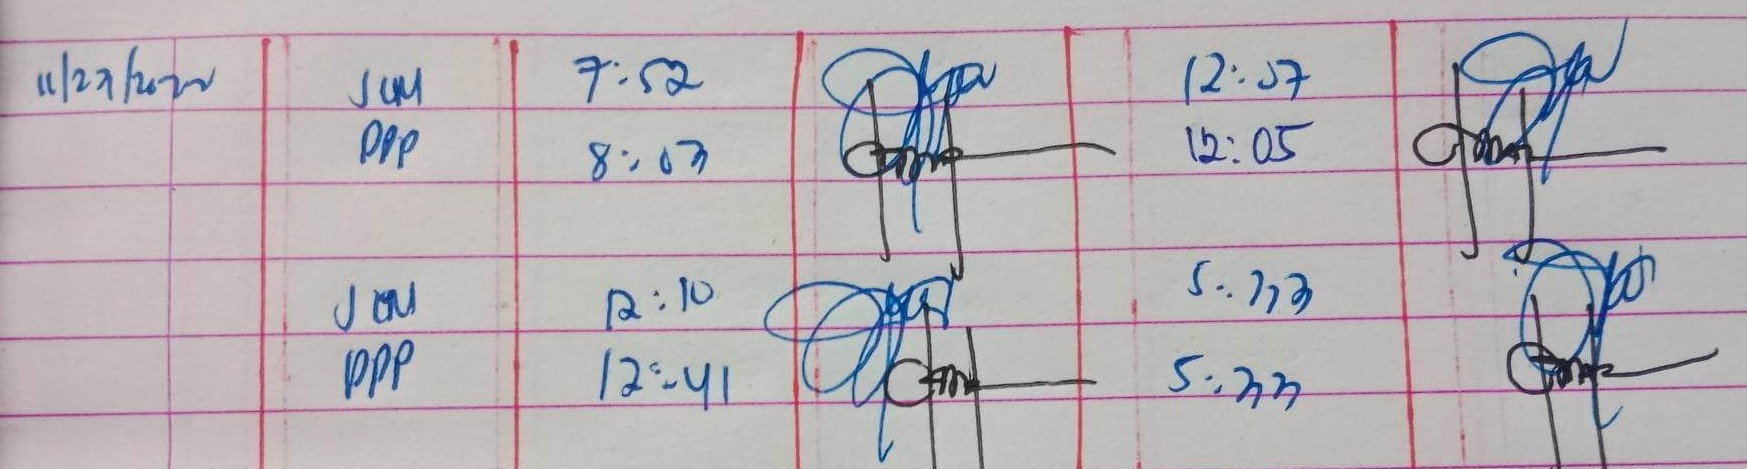 11/27/2022 JCM 7:52 12:07
PPP 8:03 12:05
JCM 12:10 5:33
PPP 12:41 5:33